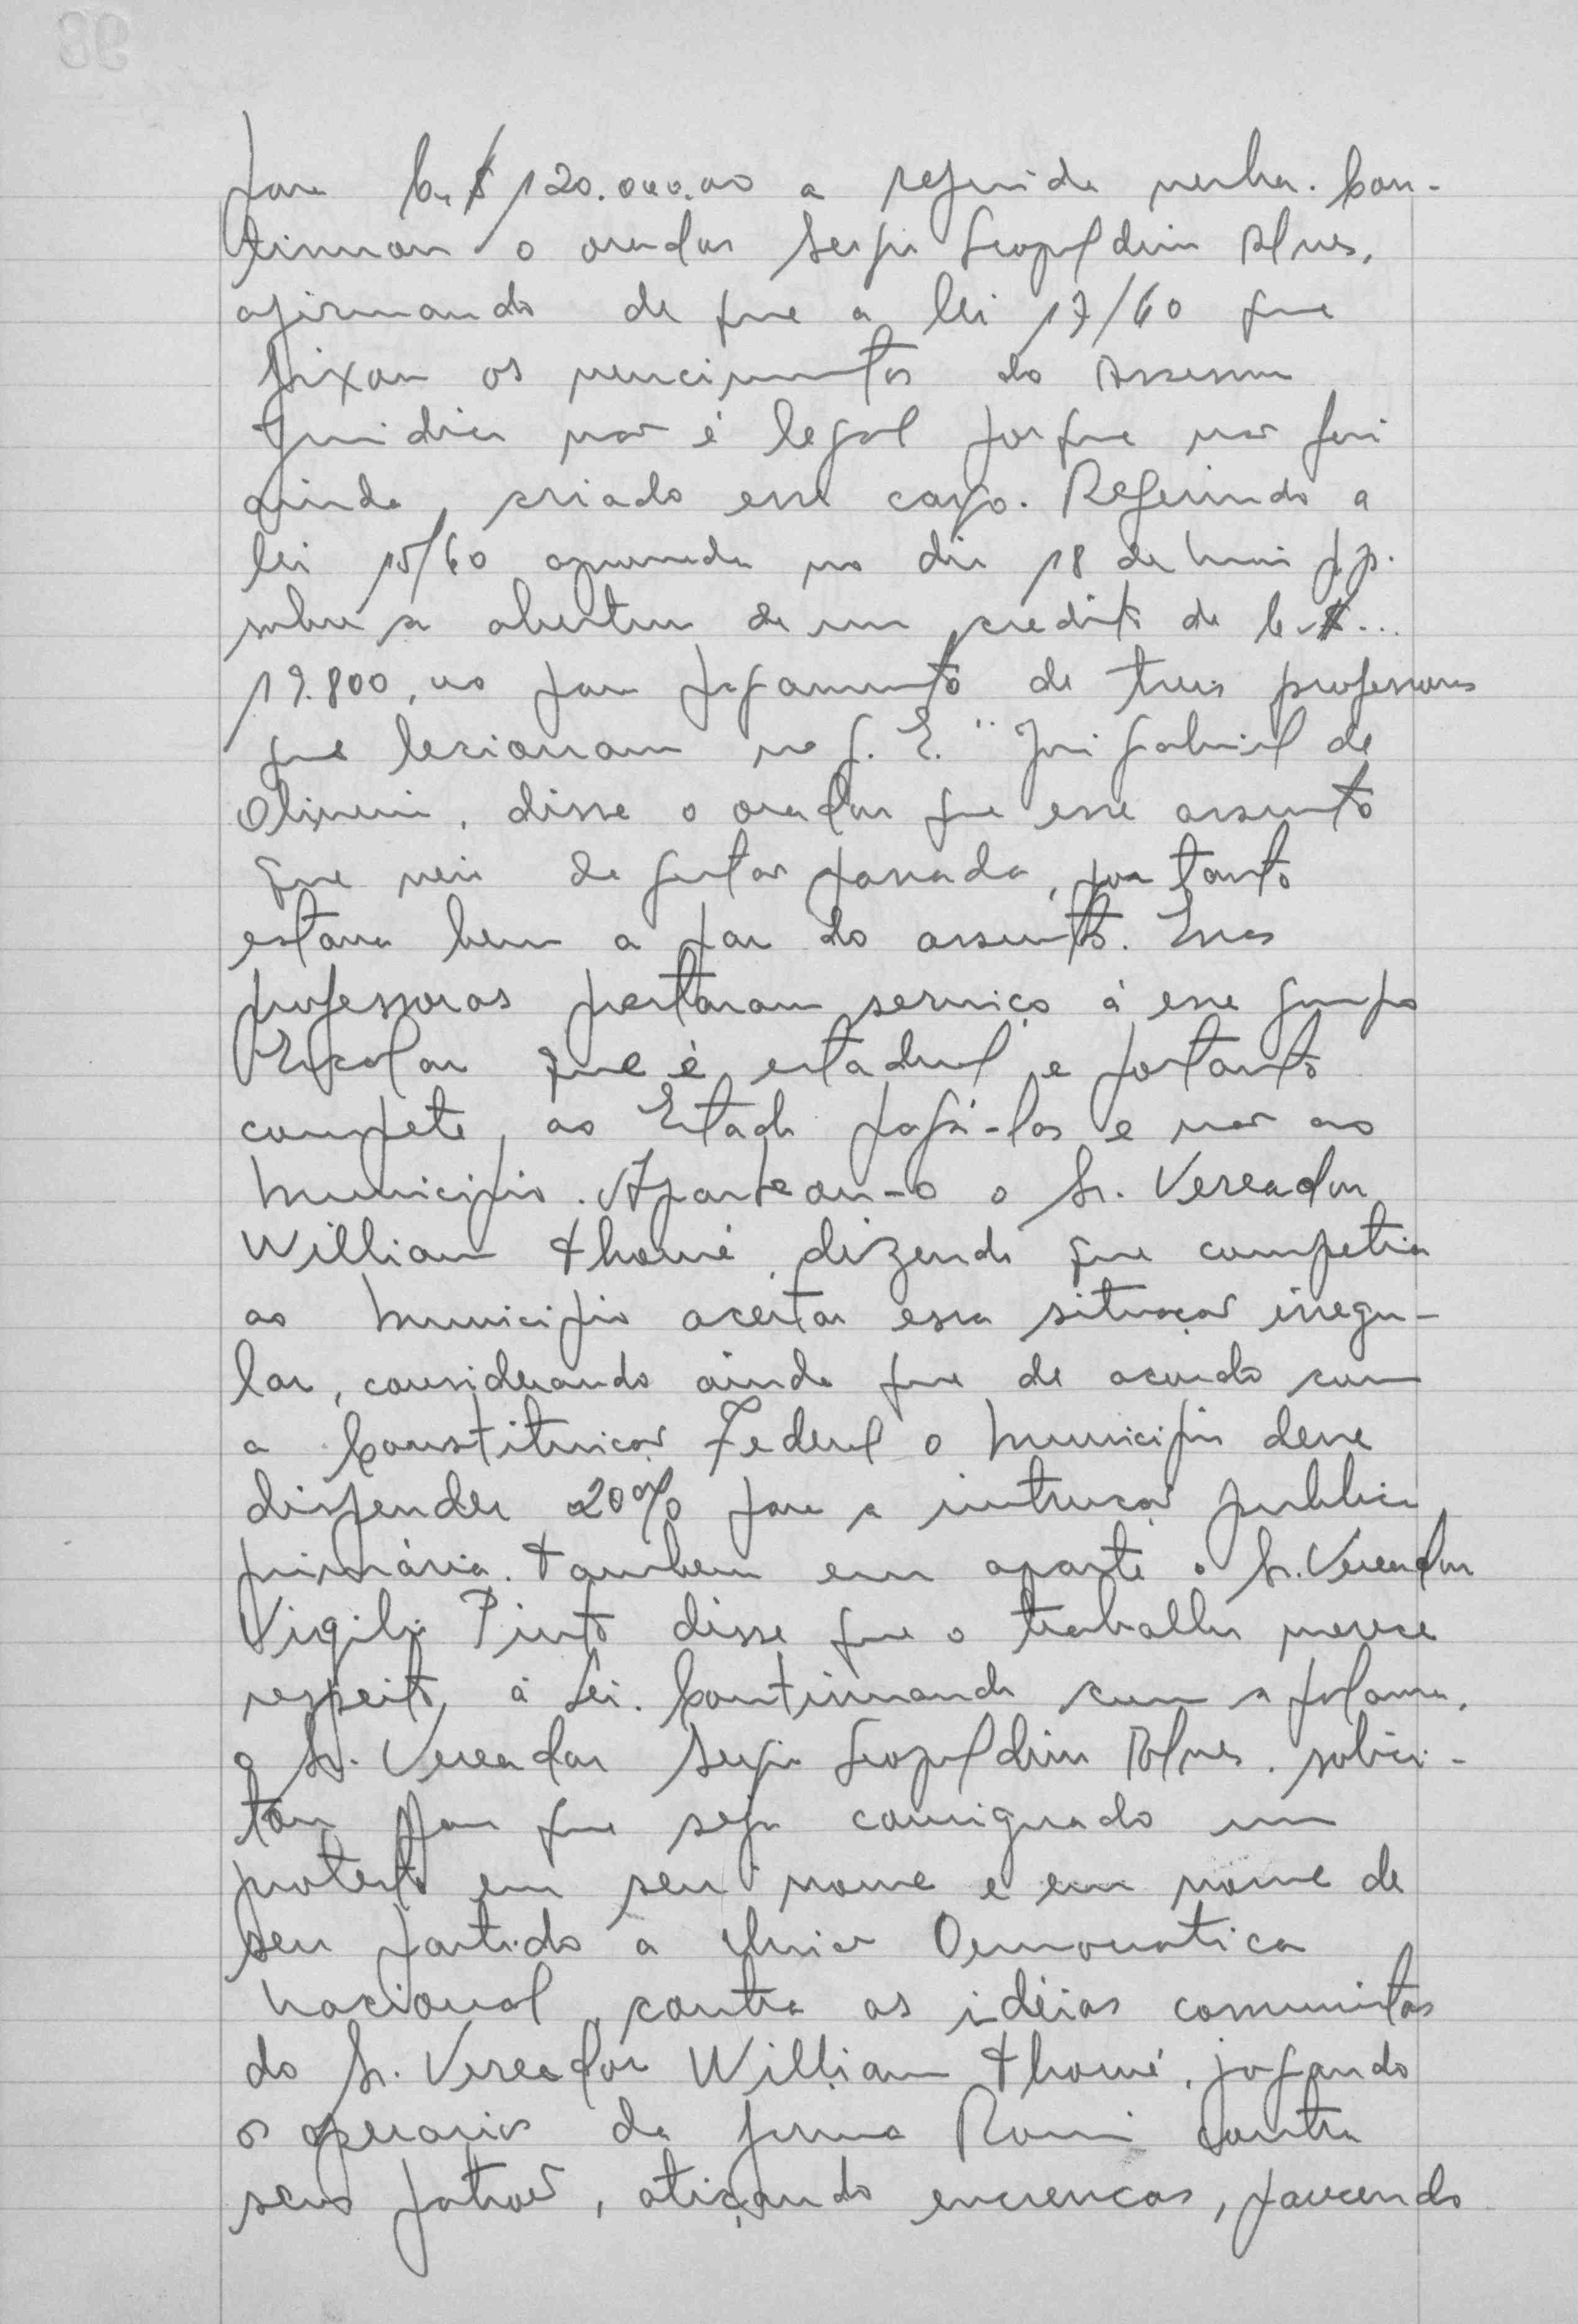 para Cr$ 120.000,00 a referida verba. Con-
tinuou o orador Sergio Leopoldino Alves,
afirmando de que a lei 17/60 que
fixou os vencimentos do Assessor
Juridico não é legal porque não foi
ainda criado esse cargo. Referindo a
lei 15/60 aprovada no dia 18 de Maio p.p.
sobre a abertura de um credito de Cr$...
19.800,00 para pagamento de tres professoras
que lecionam no G. E. "José Gabriel de
Oliveira, disse o orador que esse assunto
que veio da gestão passada, portanto
estava bem a par do assunto. Essas
professoras prestaram serviço á esse Grupo
Escolar que é estadual e portanto
compete ao Estado pagá-las e não ao
Municipio. Aparteou-o o Sr. Vereador
William Thomé, dizendo que competia
ao Municipio acertar essa situação irregu-
lar, considerando ainda que de acordo com
a Constituição Federal o Municipio deve
dispender 20% para a instrução publica
primária. Tambem em aparte o Sr. Vereador
Virgilio Pinto disse que o trabalho merece
respeito á Lei. Continuando com a palavra,
o Sr. Vereador Sergio Leopoldino Alves, solici-
tou para que seja consignado um
protesto em seu nome e em nome de
seu partido a União Democratica
Nacional, contra as idéias comunistas
do Sr. Vereador William Thomé, jogando
os operarios da firma Romi contra
seus patrões, atiçando encrencas, parecendo